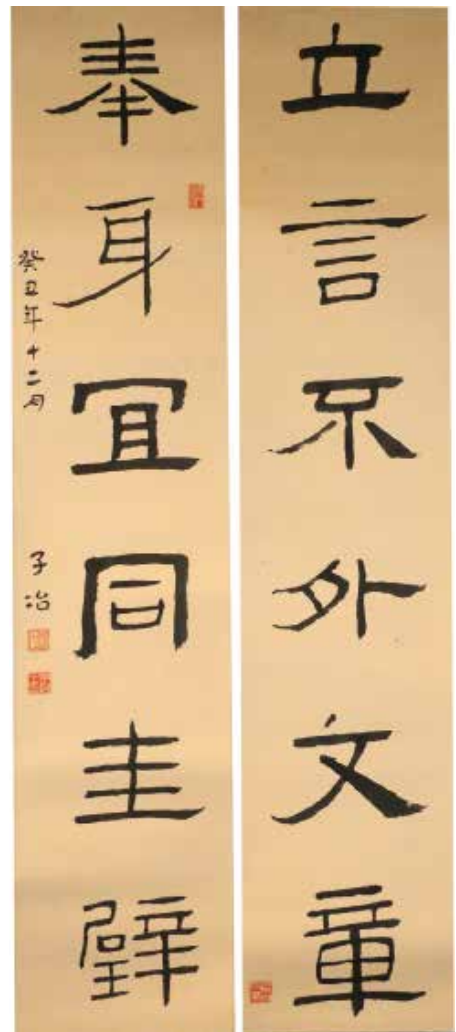 立言不外文章
奉身冝同圭璧
癸丑年十二月
子冶